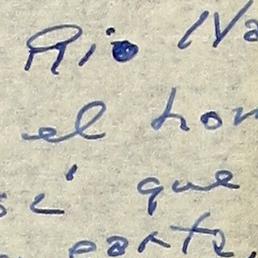 Rio Na
el hon
si que
parte